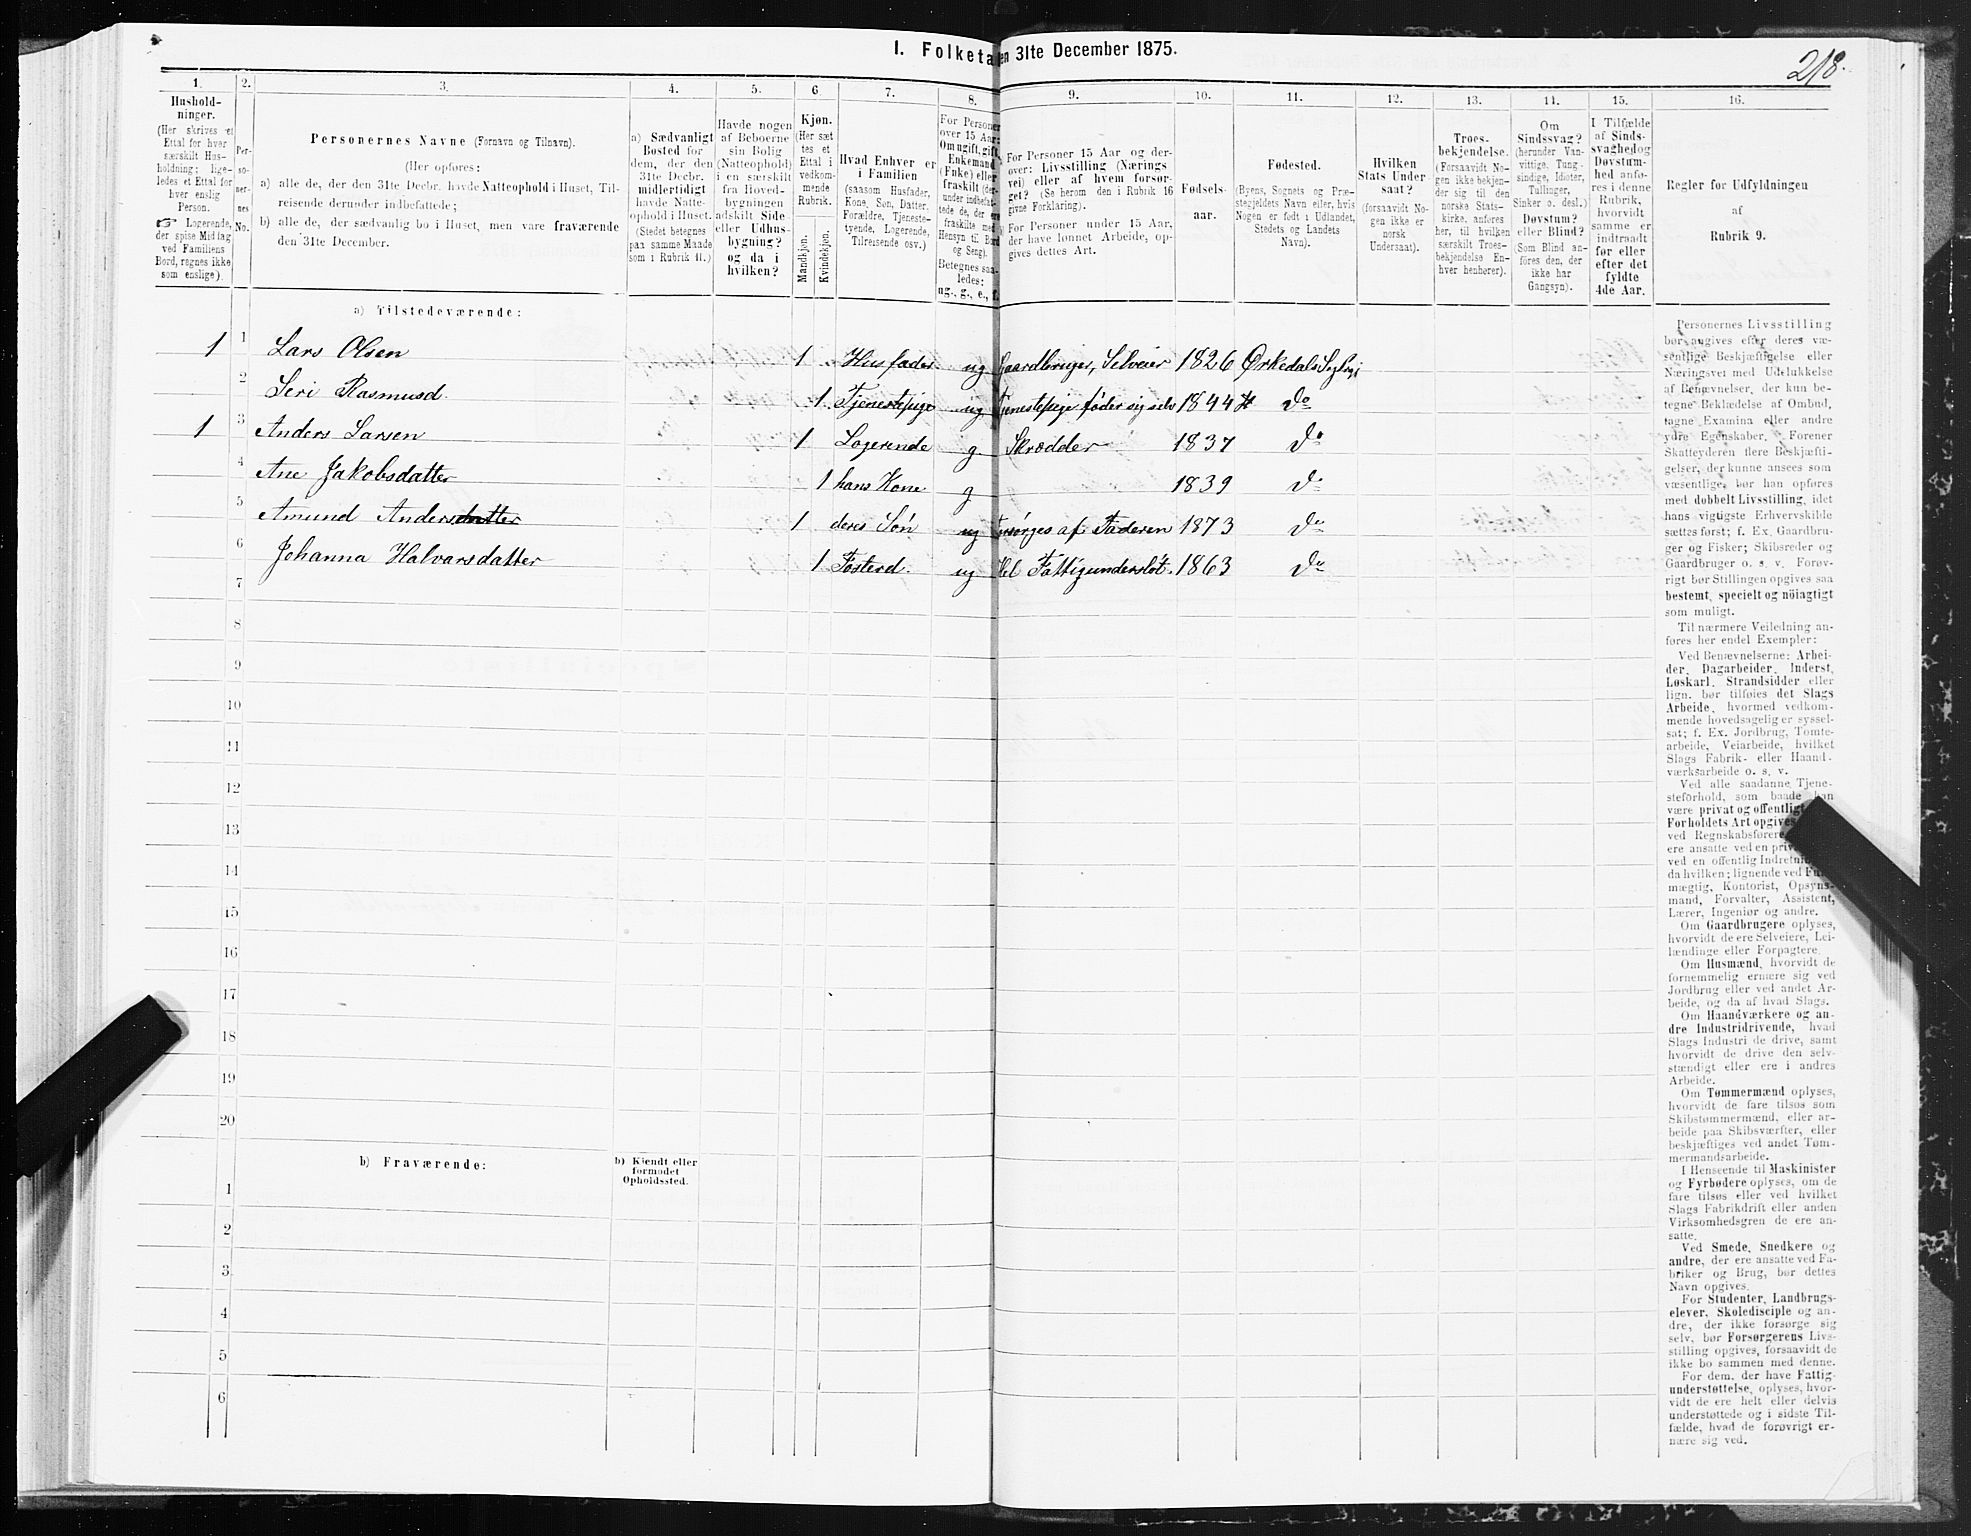 I. Folketa en 31te December 1875.
218.
1.
2.
3.
4.
5.
6
7.
8.
9.
10.
11.
12.
13.
14.
15.
16.
Hushold-
ninger.
(Her skrives et
Ettal for hver
særskilt Hus-
holdning; lige-
ledes et Ettal for
hver enslig
Person.
☞ Logerende,
der spise Middag
ved Familiens
Bord, regnes ikke
som enslige).
Per-
so-
ner-
nes
No.
Personernes Navne (Fornavn og Tilnavn).
(Her opføres:
a) alle de, der den 31te Decbr. havde Natteophold i Huset, Til-
reisende derunder indbefattede;
b) alle de, der sædvanlig bo i Huset, men vare fraværende
den 31te December.
a) Sædvanligt
Bosted for
dem, der den
31te Decbr.
midlertidigt
havde Natte-
ophold i Huset.
(Stedet betegnes
paa samme Maade
som i Rubrik 11.)
Havde nogen
af Beboerne
sin Bolig
(Natteophold)
i en særskilt
fra Hoved-
bygningen
adskilt Side-
eller Udhus-
bygning?
og da i
hvilken?
Kjøn.
(Her sæt
tes et
Ettal i
vedkom-
mende
Rubrik.
Mandkjøn.
Kvindekjøn.
Hvad Enhver er
i Familien
(saasom Husfader,
Kone, Søn, Datter,
Forældre, Tjeneste-
tyende, Logerende,
Tilreisende osv.)
For Personer
over 15 Aar:
Om ugift, gift,
Enkemand
(Enke) eller
fraskilt (der-
under indbefat-
tede de, der ere
fraskilte med
Hensyn til Bord
og Seng).
Betegnes saa-
ledes:
ug., g., e., f.
For Personer 15 Aar og der-
over: Livsstilling (Nærings
vei) eller af hvem forsør-
get? (Se herom den i Rubrik 16
givne Forklaring).
For Personer under 15 Aar,
der have lønnet Arbeide, op-
gives dettes Art.
Fødsels-
aar.
Fødested.
(Byens, Sognets og Præ-
stegjeldets Navn eller, hvis
Nogen er født i Udlandet,
Stedets og Landets
Navn).
Hvilken
Stats Under
saat?
(forsaavidt No-
gen ikke er
norsk
Undersaat).
Troes-
bekjendelse.
(Forsaavidt No-
gen ikke bekjen-
der sig til den
norske Stats-
kirke, anføres
her, til hvilken
særskilt Troes-
bekjendelse En-
hver henhører).
Om
Sindssvag?
(herunder Van-
vittige, Tung-
sindige, Idioter,
Tullinger,
Sinker o. desl.)
Døvstum?
eller Blind?
(Som Blind an-
føres den, der
ikke har
Gangsyn).
I Tilfælde
af Sinds-
svaghed og
Døvstum-
hed anfø-
res i denne
Rubrik,
hvorvidt
samme er
indtraadt
før eller
efter det
fyldte
4de Aar.
Regler for Udfyldningen
af
Rubrik 9.
a) Tilstedeværende:
1 1 Lars Olsen 1 Husfader ug Gaardbruger, Selveier 1826 Ørkedals Sogn
2 Seri Rasmusd. 1 Tjenestepige ug Tjenestepige føder sig selv 1844 Do
1 3 Anders Larsen 1 Logerende g Skrædder 1837 Do
4 Ane Jakobsdatter 1 hans Kone g 1839 Do
5 Amund Andersdatter 1 deres Søn ug Forsørges af Faderen 1873 Do
6 Johanna Halvarsdatter 1 Fosterd. ug Hel Fattigunderstøt. 1863 Do
7
8
9
10
11
12
13
14
15
16
17
18
19
20
b) Fraværende:
b) Kjendt eller
formodet
Opholdssted.
1
2
3
4
5
6
Personernes Livsstilling
bør angives efter deres væ-
sentlige Beskjæftigelse eller
Næringsvei med Udelukkelse
af Benævnelser, der kun be-
tegne Beklædelse af Ombud,
tagne Examina eller andre
ydre Egenskaber. Forener
Skatteyderen flere Beskjæfti-
gelser, der kunne ansees som
væsentlige, bør han opføres
med dobbelt Livsstilling, idet
hans vigtigste Erhvervskilde
sættes først; f. Ex. Gaardbru-
ger og Fisker; Skibsreder og
Gaardbruger o. s. v. Forøv-
rigt bør Stillingen opgives saa
bestemt, specielt og nöiagtigt
som muligt.
Til nærmere Veiledning an-
føres her endel Exempler:
Ved Benævnelserne: Arbei-
der, Dagarbeider, Inderst,
Løskarl, Strandsidder eller
lign. bør tilføies det Slags
Arbeide, hvormed vedkom-
mende hovedsagelig er syssel-
sat; f. Ex. Jordbrug, Tomte-
arbeide, Veiarbeide, hvilket
Slags Fabrik- eller Haand-
værksarbeide o. s. v.
Ved alle saadanne Tjene-
steforhold, som baade kan
være privat og offentlig
Forholdets Art opgives
ved Regnskabsførere
ere ansatte ved en priv
ved en offentlig Indretning
da hvilken; lignende ved Fuld-
mægtig, Kontorist, Opsyns-
mand, Forvalter, Assistent,
Lærer, Ingeniør og andre.
Om Gaardbrugere oplyses,
hvorvidt de ere Selveiere, Lei-
lændinge eller Forpagtere.
Om Husmænd, hvorvidt de
fornemmelig ernære sig ved
Jordbrug eller ved andet Ar-
beide, og da af hvad Slags.
Om Haandværkere og an-
dre Industridrivende, hvad
Slags Industri de drive, samt
hvorvidt de drive den selv-
stændigt eller ere i andres
Arbeide.
Om Tømmermænd oplyses,
hvorvidt de fare tilsøs som
Skibstømmermænd, eller ar-
beide paa Skibsværfter, eller
beskjæftiges ved andet Tøm-
mermandsarbeide.
I Henseende til Maskinister
og Fyrbødere oplyses, om de
fare tilsøs eller ved hvilket
Slags Fabrikdrift eller anden
Virksomhedsgren de ere an-
satte.
Ved Smede, Snedkere og
andre, der ere ansatte ved Fa-
briker og Brug, bør dettes
Navn opgives.
For Studenter, Landbrugs-
elever, Skoledisciple og an-
dre, der ikke forsørge sig
selv, bør Forsørgerens Livs-
stilling opgives, forsaavidt de
ikke bo sammen med denne.
For dem, der have Fattig-
understøttelse, oplyses, hvor-
vidt de ere helt eller delvis
understøttede og i sidste Til-
fælde, hvad de forøvrigt er-
nære sig ved.